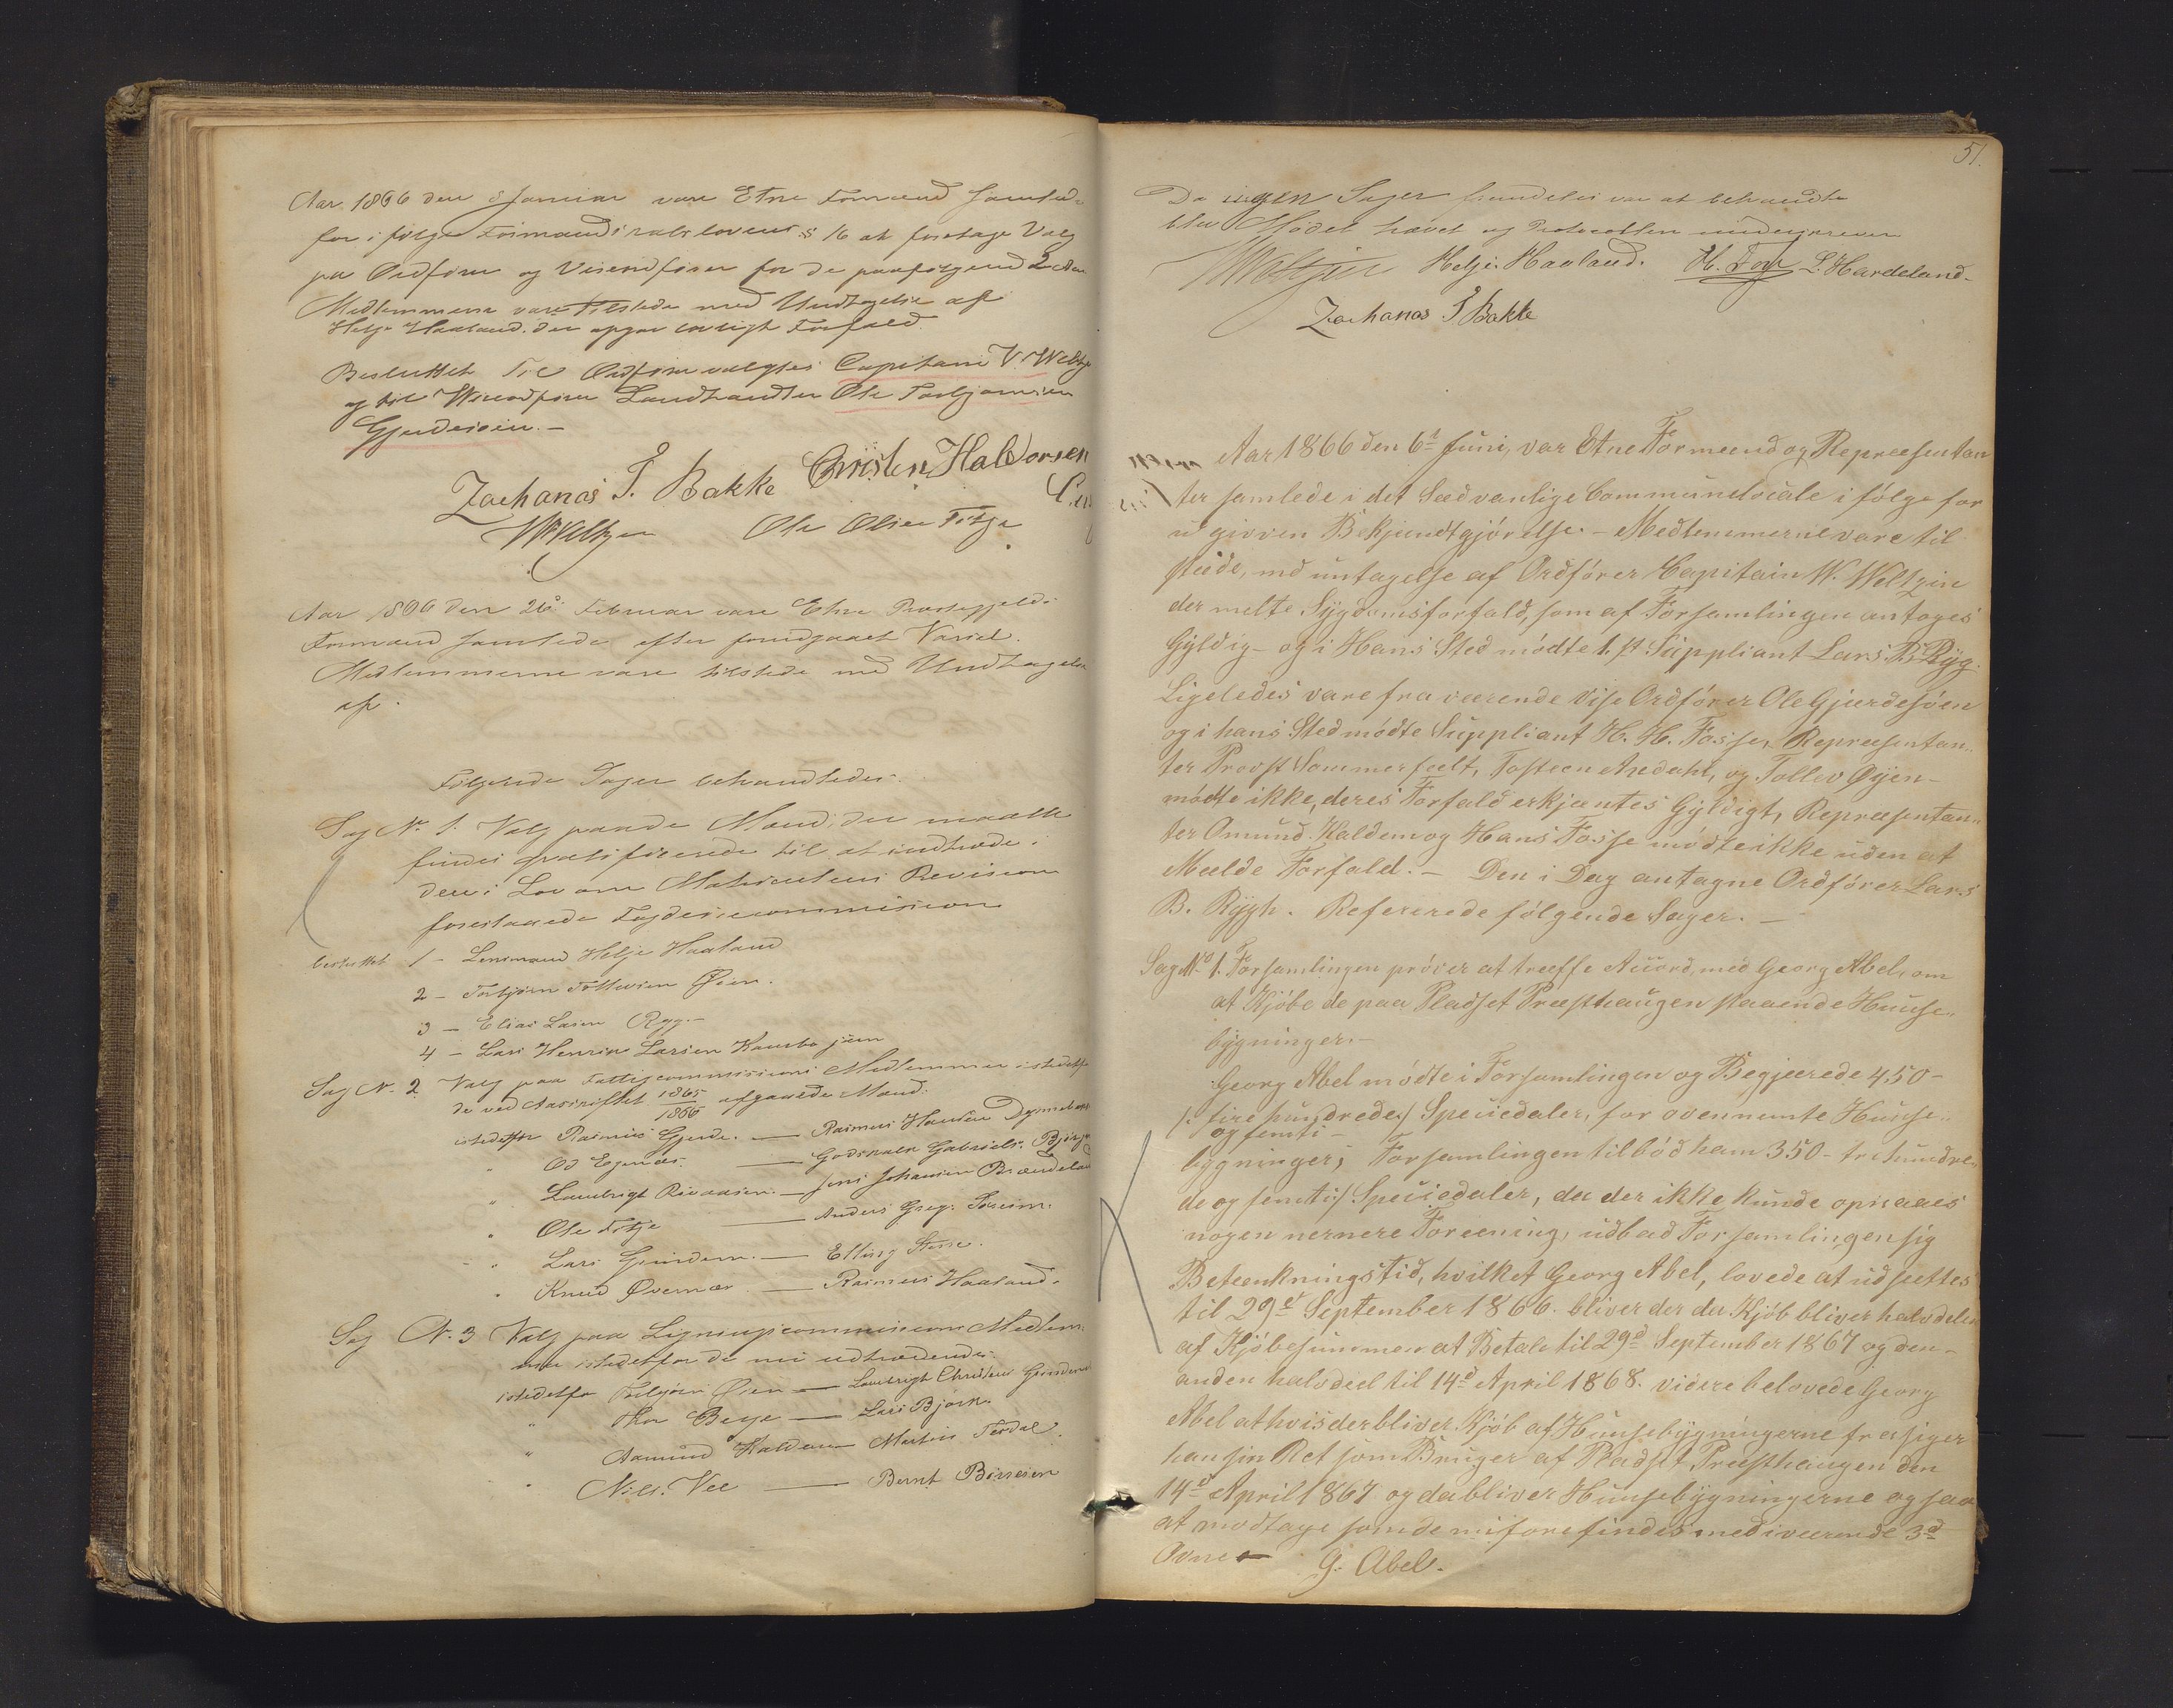 Aar 1866 den 8 Januar vare Etne Formænd samlede
for i følge Formandskabslovens § 16 at foretage Valg
paa Ordfører og Viseordfører for de paafølgende 2 Aar
Medlemmerne vare tilstede med Undtagelse af
Helje Haaland, der opgav lovligt Forfald.
Besluttet Til Ordfører valgtes Capitain V. Weltzin
og til Viseordfører Landhandler Ole Torbjørnsen
Gjerdesøen. -
Zacharias T. Bakke Christen Haldorsen
WWeltzin Ole Olsen Fitje
Aar 1866 den 26. Februar vare Etne Præstegjelds
Formænd samlede efter forudgaaet Varsel.
Medlemmerne vare tilstede med Undtagelse
af.
Følgende Sager behandledes.
Sag No. 1. Valg paa de Mænd, der maatte
findes qvalificerede til at indtræde i
den i Lov om Matriculens Revision
foreslaaede Fogderiecommission
besluttet 1 - Lensmand Helje Haaland
2 - Torbjørn Tollevsen Øien.
3 - Elias Larsen Ryg. -
4 - Lars Henrik Larsen jun
Sag N. 2 Valg paa Fattigcommissions Medlemmer istedetfor
de ved Aarsskiftet 1865/1866 afgaaede Mænd.
istedetfor Rasmus Gjerde. — Rasmus Hansen
" Od Egenæs. — Godskalk Gabriels.
" Lambrigt — Jens Johansen
" Ole Fitje — Anders Greg. Sørheim.
" Lars Grindem. — Elling Stene.
" Knud Øvernæs — Rasmus Haaland.
Sag N. 3 Valg paa Ligningscommissions Medlem-
mer istedetfor de nu udtrædende.
istedetfor Torbjørn Øien — Lambrigt Christens Grindem
" Thor Berge — Lars Bjørk.
" Aamund Kaldem — Martin Tesdal.
" Nils Vee — Bernt
51.
Da ingen Sager fremdeles var at behandle
blev Mødet hævet og Protocollen underskreven
WWeltzin Helje Haaland. H. Foss L. Hardeland.
Zacharias T Bakke
Aar 1866 den 6d Juni, var Etne Formænd og Repræsentan
ter samlede i det Sædvanlige Communelocale i følge for
ud givven Bekjendtgjørelse. - Medlemmerne vare til
stæde, md untagelse af Ordfører Kapitain W. Weltzin
der melte Sygdomsforfald, som af Forsamlingen antoges
Gyldig - og i Hans Sted mødte 1.st Suppliant Lars B. Ryg.
Ligeledes vare fraværende Vise Ordfører Ole Gjærdesøen
og i hans Sted mødte Suppliant H. H. Fosse, Repræsentan-
ter Provst Sommerfeelt, Tosteen Axdahl, og Tollev Øyen -
mødte ikke, deres Forfald erkjæntes Gyldigt, Repræsentan-
ter Omund Kaldem og Hans Fosse mødte ikke uden at
Mælde Forfald. - Den i Dag antagne Ordfører Lars
B. Rygh. Refererede følgende Sager. -
Sag No 1. Forsamlingen prøver at træffe Acuord, med Georg Abel, om
at Kjøbe de paa Pladset Præsthaugen staaende Huuse-
bygninger. -
Georg Abel mødte i Forsamlingen og Begjærede 450 -
/: fire hundrede /: Speciedaler, for ovennemte Huuse-
og femti -
bygninger; Forsamlingen tilbød ham 350 - tre hundre-
de og femti :/: Speciedaler, da der ikke kunde opnaaes
nogen nermere Foreening, udbad Forsamlingen sig
Beteenkningstid, hvilket Georg Abel, lovede at udsettes
til 29d September 1866. bliver der da Kjøb bliver halvdelen
af Kjøbesummen at Betale til 29d September 1867 og den
anden halvdeel til 14d April 1868. videre belovede Georg
Abel at hvis der bliver Kjøb af Huusebygningerne frasiger
han sin Ret som Bruger af Pladset Præsthaugen den
14d April 1867 og da bliver Huusebygningerne og saa
at modtage som de nu forefindes med iværende 3d
Ovne - G. Abel.